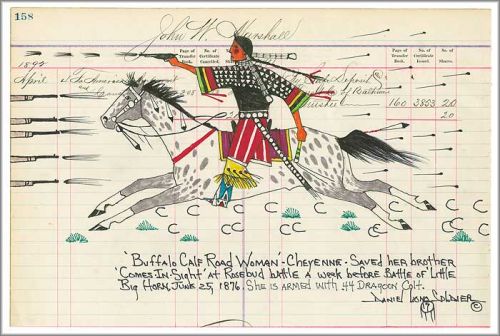 158
John W. Marshall
Page of Transfer Book.
No. of Certificate Cancelled.
No. of Shares
Page of Transfer Book.
No. of Certificate Issued.
No. of Shares.
April
160 3853 20
20
'Buffalo Calf Road Woman'-Cheyenne-Saved her brother
'Comes-In-Sight' at Rosebud battle a week before Battle of Little
Big Horn, June 25, 1876. She is armed with 44 Dragoon Colt.
Daniel Long Soldier ©